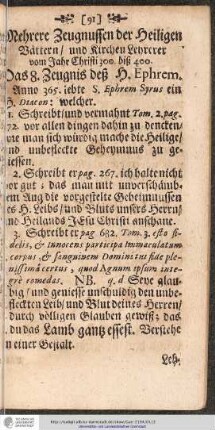 [91]
Mehrere Zeugnussen der Heiligen
Vättern/ und Kirchen Lehrerer
vom Jahr Christi 300. biß 400.
Das 8. Zeugnis deß H. Ephrem.
Anno 365. lebte S. Ephrem Syrus ein
H. Diacon: welcher.
1. Schreibt/und vermahnt Tom. 2. pag.
72. vor allen dingen dahin zu dencken/
wie man sich würdig mache die Heilige/
und unbefleckte Geheymnus zu ge-
niessen.
2. Schreibt er pag. 267. ich halte nicht
vor gut: das man mit unverschänb-
tem Aug die vorgestelte Geheimnussen
des H. Leibs/ und Bluts unsers Herrn/
und Heilands JEsu Christi anschaue.
3. Schreibt er pag 682. Tom. 3. esto fi-
delis, & innocens participa immaculatum
corpus, & sanguinem Domini tui fide ple-
nissima certus, quod Agnum ipsum inte-
grè comedas. NB. q. d Seye glau-
big/ und geniesse unschuldig den unbe-
fleckten Leib/ und Blut deines Herren/
durch völligen Glauben gewiß; das
du das Lamb gantz essest. Verstehe
in einer Gestalt.
Leh.